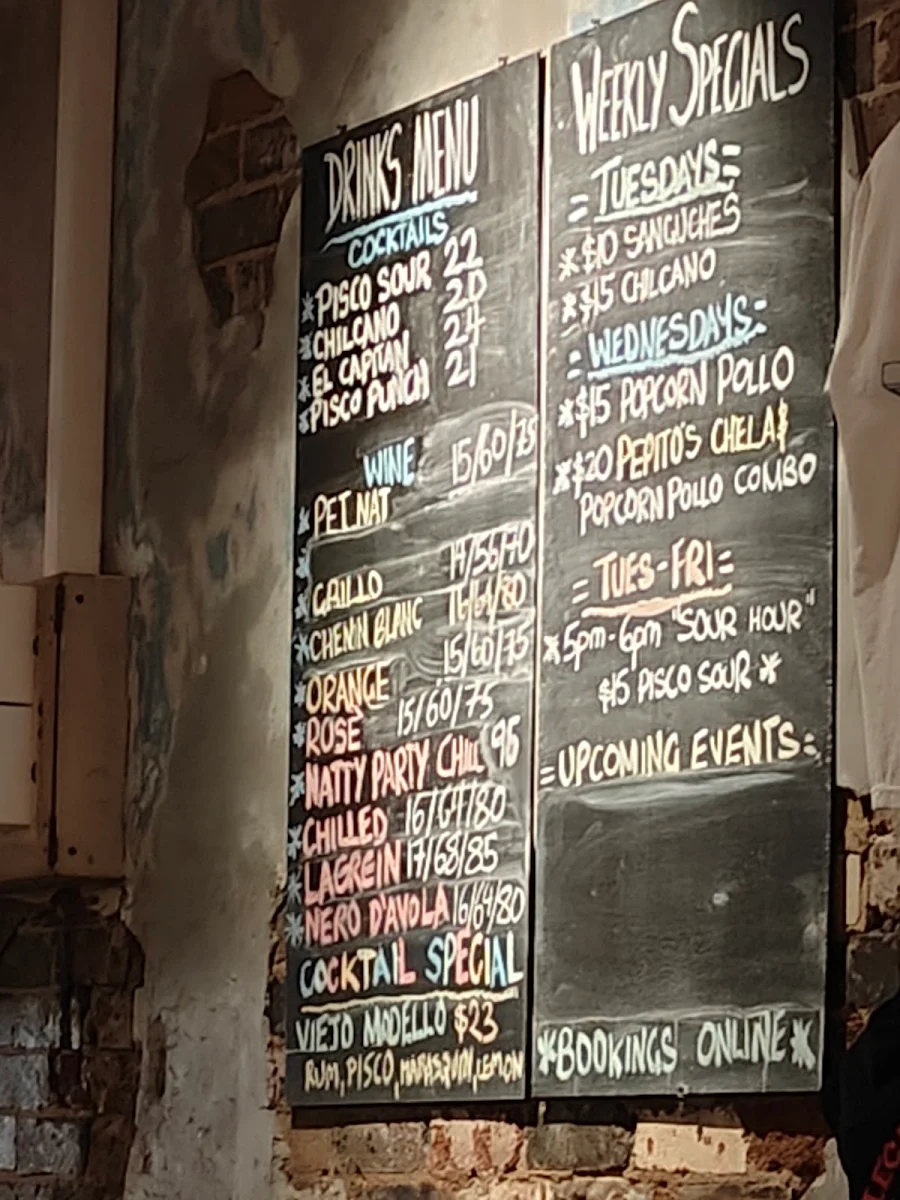 DRINKS MENU
COCKTAILS
*PISCO SOUR 22
*CHILCANO 20
*EL CAPITAN 24
*PISCO PUNCH 21
WINE 15/60/75
*PET NAT
*
*GRILLO 14/56/70
*CHENIN BLANC 16/64/80
*ORANGE 15/60/75
*ROSE 15/60/75
*NATTY PARTY CHILL 95
*CHILLED 16/64/80
*LAGREIN 17/68/85
*NERO D'AVOLA 16/64/80
COCKTAIL SPECIAL
VIEJO MODELLO $23
RUM, PISCO, LEMON
WEEKLY SPECIALS
=TUESDAYS=
*$10 SANGUCHES
*$15 CHILCANO
=WEDNESDAYS=
*$15 POPCORN POLLO
*$20 PEPITO'S CHELA &
POPCORN POLLO COMBO
=TUES-FRI=
*5pm-6pm "SOUR HOUR"
$15 PISCO SOUR*
=UPCOMING EVENTS=
*BOOKINGS ONLINE*